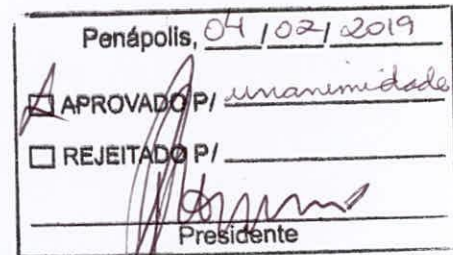 Penápolis, 04 / 02 / 2019
☒ APROVADO P/ unanimidade
☐ REJEITADO P/
Presidente